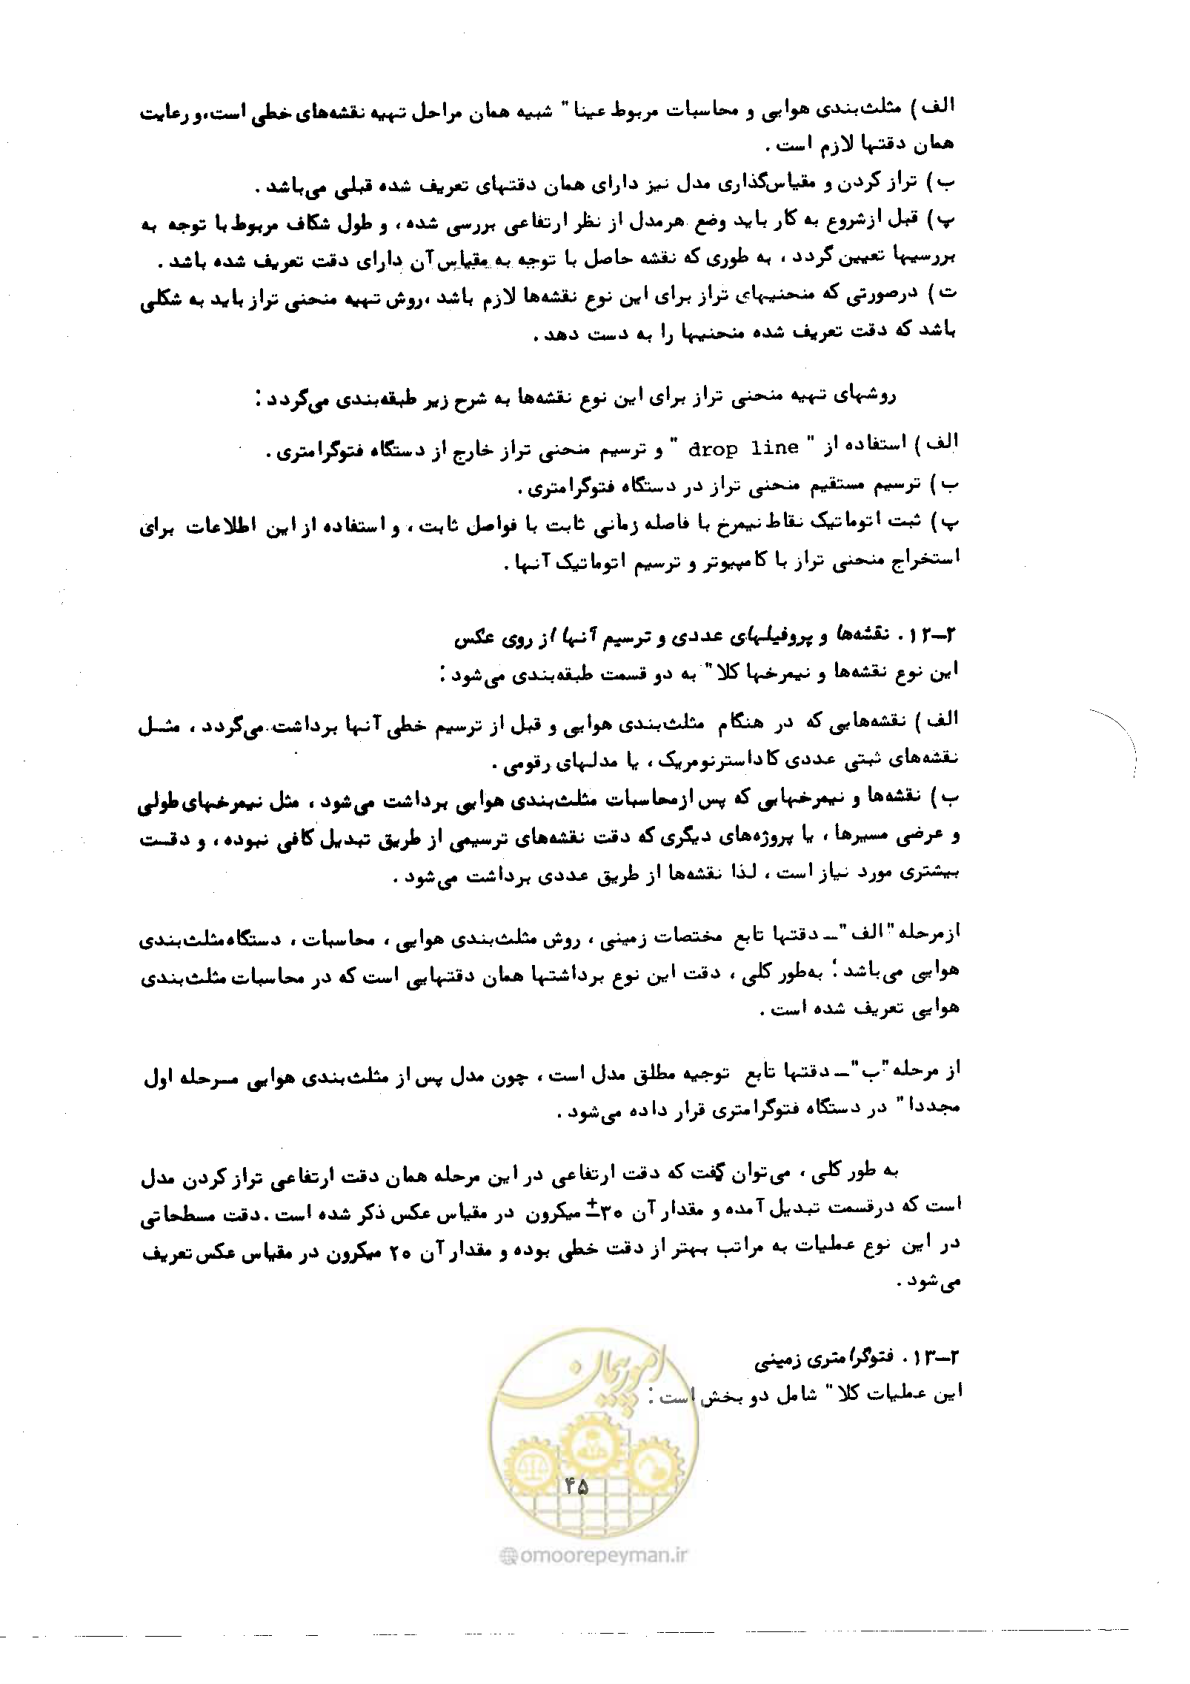 الف) مثلث‌بندی هوایی و محاسبات مربوط عینا" شبیه همان مراحل تهیه نقشه‌های خطی است،و رعایت
همان دقتها لازم است .
ب) تراز کردن و مقیاس‌گذاری مدل نیز دارای همان دقتهای تعریف شده قبلی می‌باشد .
پ) قبل ازشروع به کار باید وضع هرمدل از نظر ارتفاعی بررسی شده ، و طول شکاف مربوط با توجه به
بررسیها تعیین گردد ، به طوری که نقشه حاصل با توجه به مقیاس آن دارای دقت تعریف شده باشد .
ت) درصورتی که منحنیهای تراز برای این نوع نقشه‌ها لازم باشد ،روش تهیه منحنی تراز باید به شکلی
باشد که دقت تعریف شده منحنیها را به دست دهد .
روشهای تهیه منحنی تراز برای این نوع نقشه‌ها به شرح زیر طبقه‌بندی می‌گردد :
الف) استفاده از " drop line " و ترسیم منحنی تراز خارج از دستگاه فتوگرامتری .
ب) ترسیم مستقیم منحنی تراز در دستگاه فتوگرامتری .
پ) ثبت اتوماتیک نقاط نیمرخ با فاصله زمانی ثابت با فواصل ثابت ، و استفاده از این اطلاعات برای
استخراج منحنی تراز با کامپیوتر و ترسیم اتوماتیک آنها .
۲–۱۲ . نقشه‌ها و پروفیلهای عددی و ترسیم آنها از روی عکس
این نوع نقشه‌ها و نیمرخها کلا" به دو قسمت طبقه‌بندی می‌شود :
الف) نقشه‌هایی که در هنگام مثلث‌بندی هوایی و قبل از ترسیم خطی آنها برداشت می‌گردد ، مثـل
نقشه‌های ثبتی عددی کاداسترنومریک ، یا مدلهای رقومی .
ب) نقشه‌ها و نیمرخهایی که پس ازمحاسبات مثلث‌بندی هوایی برداشت می‌شود ، مثل نیمرخهای طولی
و عرضی مسیرها ، یا پروژه‌های دیگری که دقت نقشه‌های ترسیمی از طریق تبدیل کافی نبوده ، و دقـت
بیشتری مورد نیاز است ، لذا نقشه‌ها از طریق عددی برداشت می‌شود .
ازمرحله "الف"– دقتها تابع مختصات زمینی ، روش مثلث‌بندی هوایی ، محاسبات ، دستگاه مثلث‌بندی
هوایی می‌باشد ؛ به‌طور کلی ، دقت این نوع برداشتها همان دقتهایی است که در محاسبات مثلث‌بندی
هوایی تعریف شده است .
از مرحله "ب"– دقتها تابع توجیه مطلق مدل است ، چون مدل پس از مثلث‌بندی هوایی مـرحله اول
مجددا" در دستگاه فتوگرامتری قرار داده می‌شود .
به طور کلی ، می‌توان گفت که دقت ارتفاعی در این مرحله همان دقت ارتفاعی تراز کردن مدل
است که درقسمت تبدیل آمده و مقدار آن ۳۰± میکرون در مقیاس عکس ذکر شده است .دقت مسطحاتی
در این نوع عملیات به مراتب بهتر از دقت خطی بوده و مقدار آن ۲۰ میکرون در مقیاس عکس تعریف
می‌شود .
۲–۱۳ . فتوگرامتری زمینی
این عملیات کلا" شامل دو بخش است :
امور پیمان
۴۵
@omoorepeyman.ir